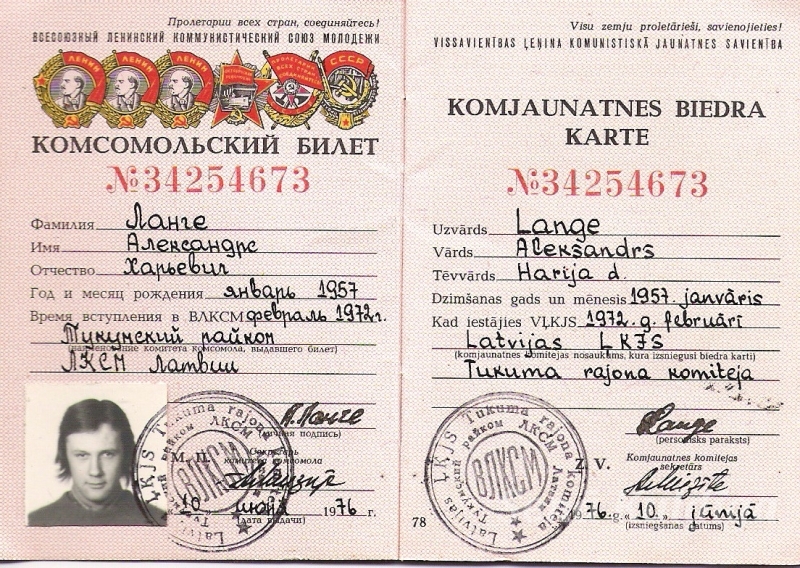 Пролетарии всех стран, соединяйтесь!
ВСЕСОЮЗНЫЙ ЛЕНИНСКИЙ КОММУНИСТИЧЕСКИЙ СОЮЗ МОЛОДЕЖИ
ЛЕНИН ЛЕНИН ЛЕНИН СССР
КОМСОМОЛЬСКИЙ БИЛЕТ
№34254673
Фамилия Ланге
Имя Александрс
Отчество Харьевич
Год и месяц рождения январь 1957
Время вступления в ВЛКСМ февраль 1972г.
Тукумский райком
(наименование комитета комсомола, выдавшего билет)
ЛКСМ Латвии
(личная подпись)
М. П. Секретарь
комитета комсомола
"10" июня 1976 г.
(дата выдачи)
Visu zemju proletārieši, savienojieties!
VISSAVIENĪBAS ĻEŅINA KOMUNISTISKĀ JAUNATNES SAVIENĪBA
KOMJAUNATNES BIEDRA
KARTE
№34254673
Uzvārds Lange
Vārds Alekšandrs
Tēvvārds Harija d.
Dzimšanas gads un mēnesis 1957. janvāris
Kad iestājies VĻKJS 1972. g. februārī
Latvijas ĻKJS
(komjaunatnes komitejas nosaukums, kura izsniegusi biedra karti)
Tukuma rajona komiteja
Lange
(personisks paraksts)
Z. V. Komjaunatnes komitejas
sekretārs
1976. g. "10." jūnijā
(izsniegšanas datums)
78
Latvijas ĻKJS Tukuma rajona komiteja
Тукумский райком ЛКСМ Латвии
ВЛКСМ